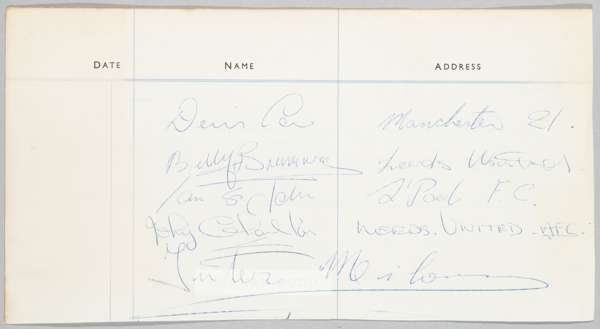 DATE NAME ADDRESS
Denis Law Manchester 21.
Billy Bremner Leeds United
Ian St John L'Pool F.C.
LEEDS. UNITED. AFC.